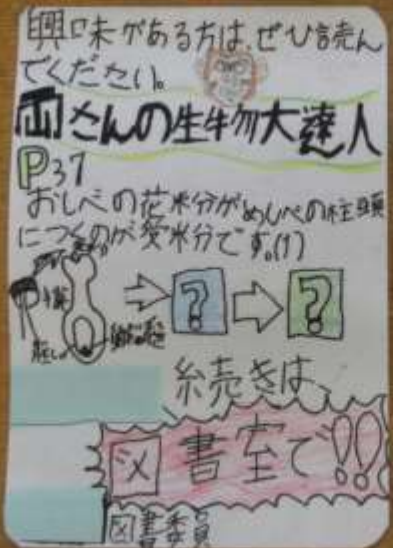 興味がある方は、ぜひ読ん
でください。
両さんの生物大達人
P37
おしべの花粉がめしべの柱頭
につくのが受粉です。(1)
? ?
続きは、
図書室で!!
図書委員